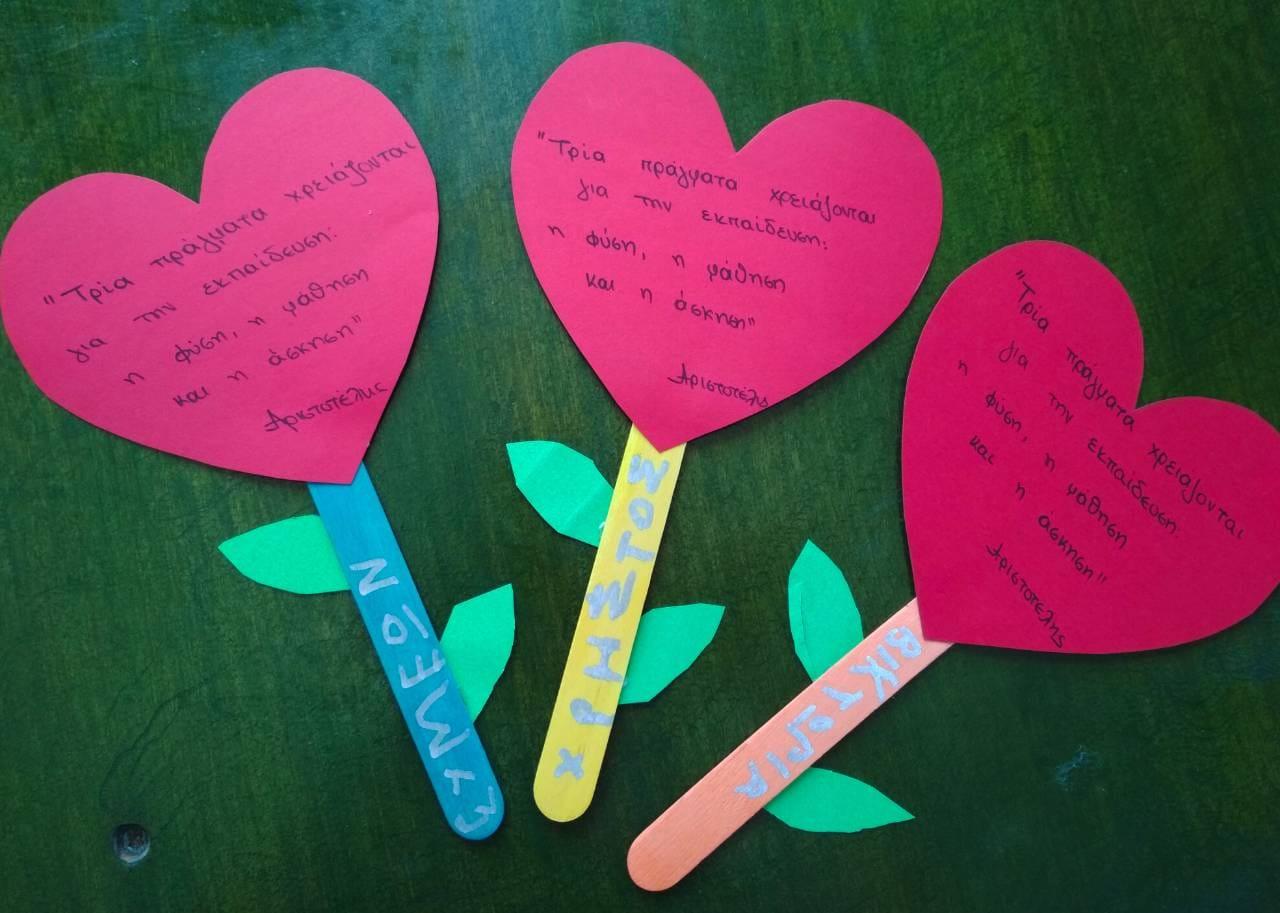 "Τρία πράγματα χρειάζονται
για την εκπαίδευση:
η φύση, η μάθηση
και η άσκηση"
Αριστοτέλης
ΣΥΜΕΩΝ
"Τρία πράγματα χρειάζονται
για την εκπαίδευση:
η φύση, η μάθηση
και η άσκηση"
Αριστοτέλης
ΧΡΗΣΤΟΣ
"Τρία πράγματα χρειάζονται
για την εκπαίδευση:
η φύση, η μάθηση
και η άσκηση"
Αριστοτέλης
ΒΙΚΤΩΡΙΑ